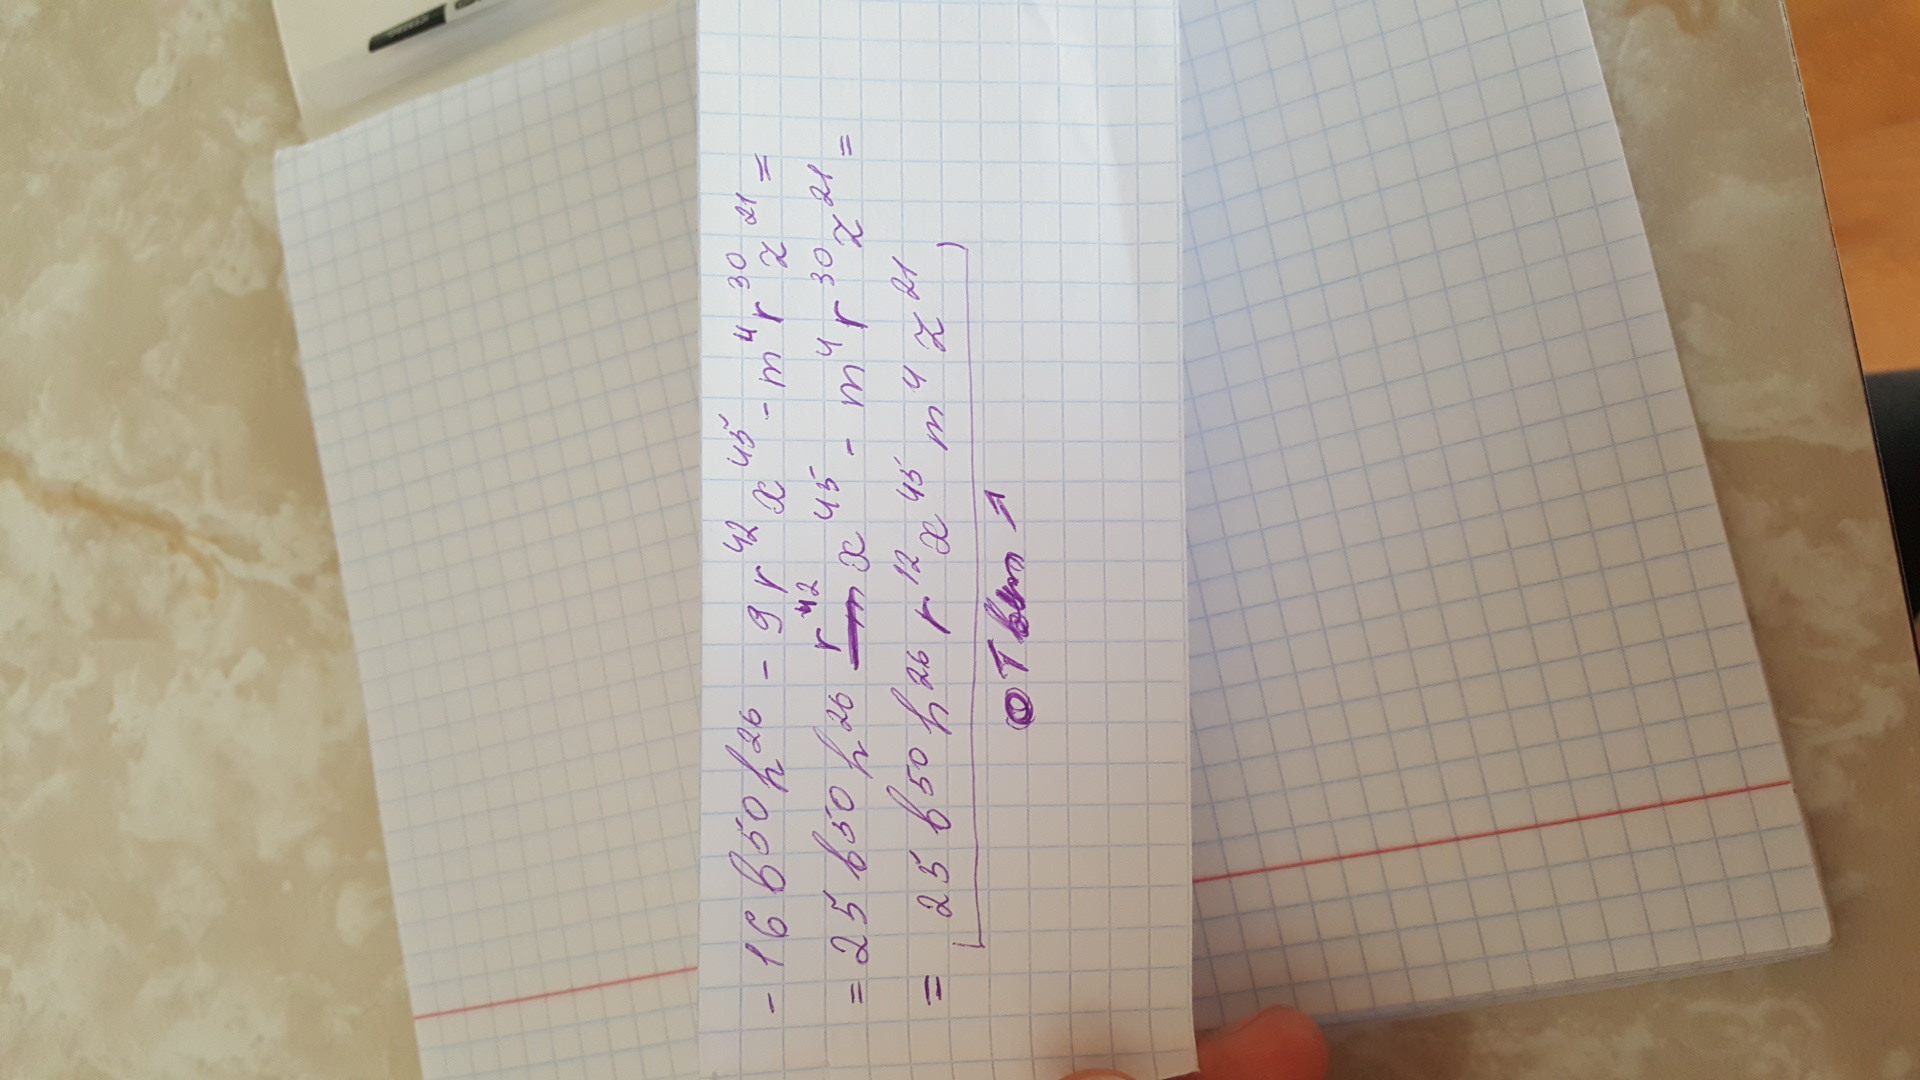 - 16 b⁵⁰ h²⁶ - 9 r⁴² x⁴⁵ - m⁴ r³⁰ z²¹ =
= 25 b⁵⁰ h²⁶ r⁴² x⁴⁵ - m⁴ r³⁰ z²¹ =
= 25 b⁵⁰ h²⁶ r¹² x⁴⁵ m⁴ z²¹
Ответ